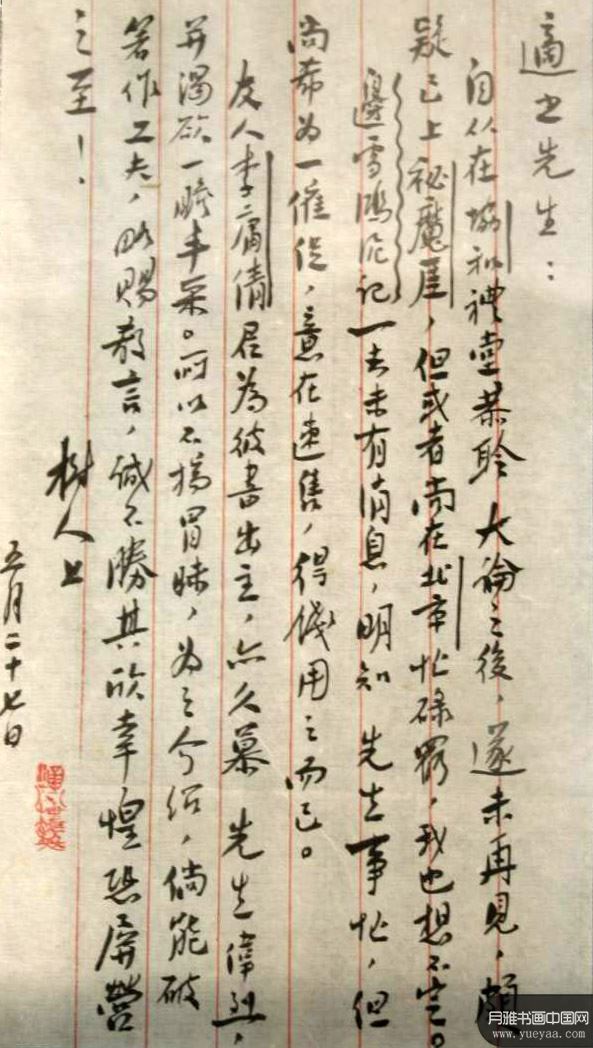 適之先生：
自从在协和禮堂恭聆大論之後，遂未再見，頗
疑已上秘魔崖，但或者尚在北京忙碌罢，我也想不定。
邊雪鴻泥记一去未有消息，明知先生事忙，但
尚希为一催促，意在速售，得錢用之而已。
友人李庸倩君為彼書出主，亦久慕先生偉烈，
并渴欲一瞻丰采。所以不揣冒昧，为之介绍，倘能破
著作工夫，略赐教言，诚不勝其欣幸惶恐屏營
之至！
樹人上
五月二十七日
月雅书画中国网
www.yueyaa.com